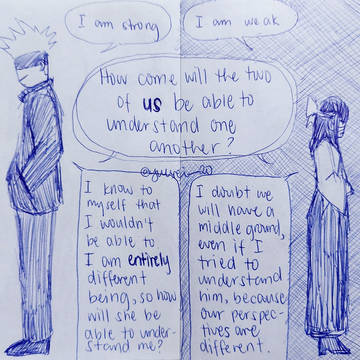 I am strong
I am weak
How come will the two
of us be able to
understand one
another?
I know to
myself that
I wouldn't
be able to
I am entirely
different
being, so how
will she be
able to under-
stand me?
I doubt we
will have a
middle ground,
even if I
tried to
understand
him, because
our perspec-
tives are
different.